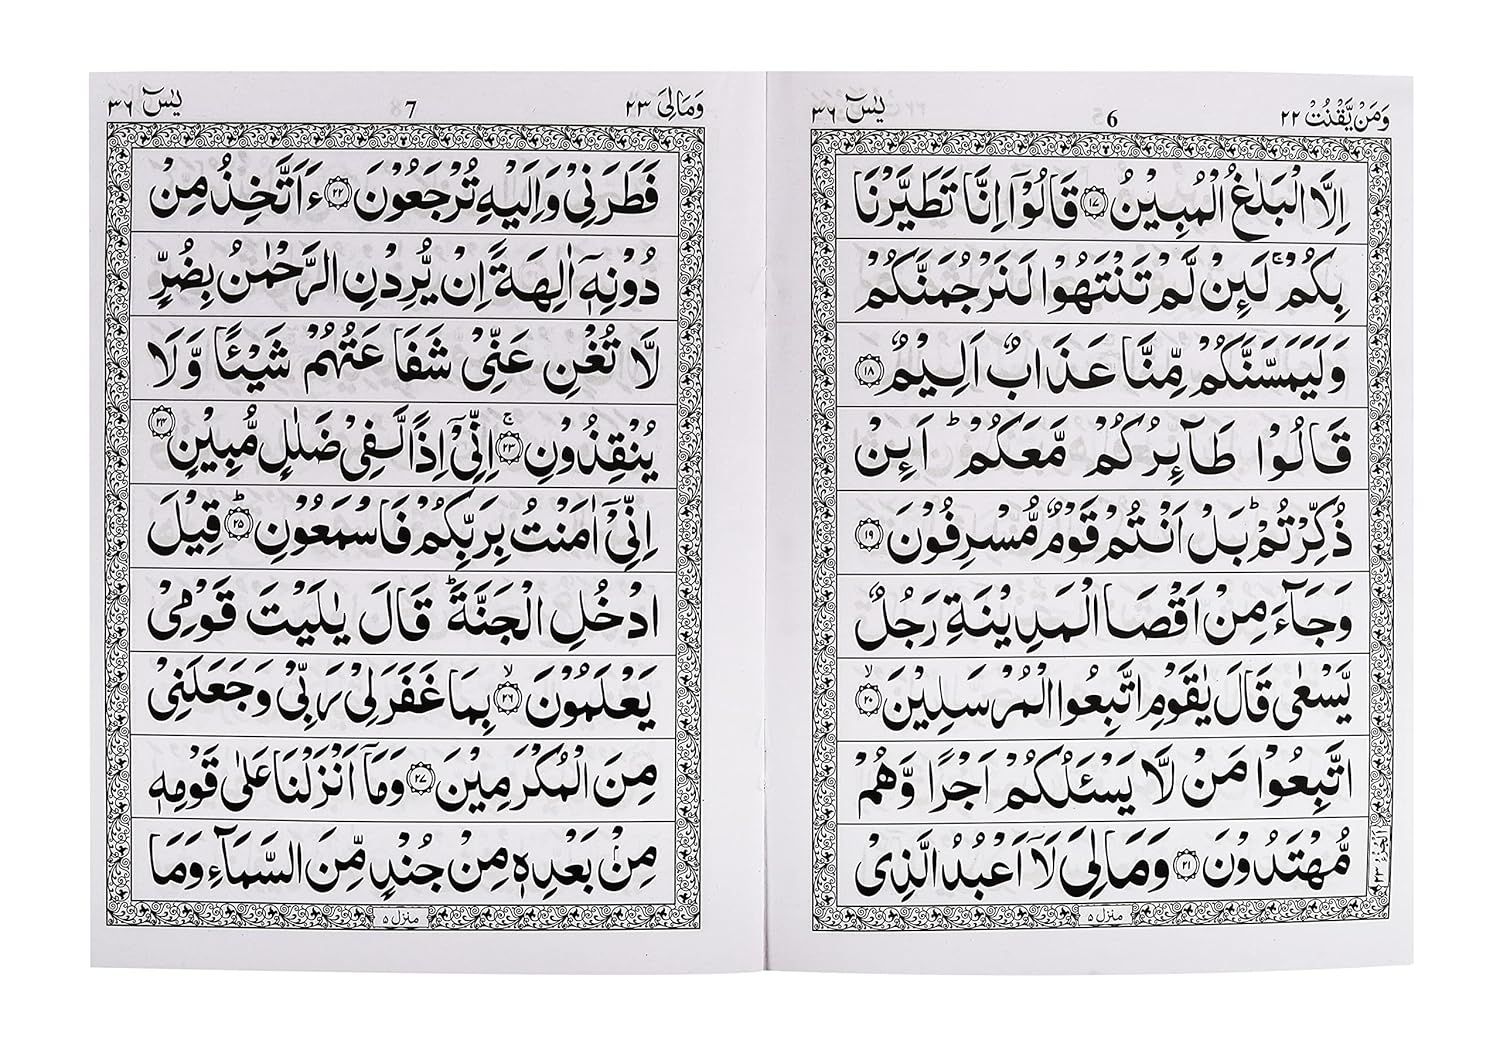 وَمَنْ يَّقْنُتْ ٢٢
6
يٰسٓ ٣٦
اِلَّا الْبَلٰغُ الْمُبِيْنُ ﴿۱۷﴾ قَالُوْۤا اِنَّا تَطَيَّرْنَا
بِكُمْ ۚ لَئِنْ لَّمْ تَنْتَهُوْا لَنَرْجُمَنَّكُمْ
وَلَيَمَسَّنَّكُمْ مِّنَّا عَذَابٌ اَلِيْمٌ ﴿۱۸﴾
قَالُوْا طَآئِرُكُمْ مَّعَكُمْ ؕ اَئِنْ
ذُكِّرْتُمْ ؕ بَلْ اَنْتُمْ قَوْمٌ مُّسْرِفُوْنَ ﴿۱۹﴾
وَجَآءَ مِنْ اَقْصَا الْمَدِيْنَةِ رَجُلٌ
يَّسْعٰى قَالَ يٰقَوْمِ اتَّبِعُوا الْمُرْسَلِيْنَ ۙ﴿۲۰﴾
اتَّبِعُوْا مَنْ لَّا يَسْـَٔلُكُمْ اَجْرًا وَّهُمْ
مُّهْتَدُوْنَ ﴿۲۱﴾ وَمَا لِىَ لَاۤ اَعْبُدُ الَّذِىْ
الجزء ٢٣
منزل ٥
وَمَا لِىَ ٢٣
7
يٰسٓ ٣٦
فَطَرَنِىْ وَاِلَيْهِ تُرْجَعُوْنَ ﴿۲۲﴾ ءَاَتَّخِذُ مِنْ
دُوْنِهٖۤ اٰلِهَةً اِنْ يُّرِدْنِ الرَّحْمٰنُ بِضُرٍّ
لَّا تُغْنِ عَنِّىْ شَفَاعَتُهُمْ شَيْـًٔا وَّلَا
يُنْقِذُوْنِ ۚ﴿۲۳﴾ اِنِّىْۤ اِذًا لَّفِىْ ضَلٰلٍ مُّبِيْنٍ ﴿۲۴﴾
اِنِّىْۤ اٰمَنْتُ بِرَبِّكُمْ فَاسْمَعُوْنِ ؕ﴿۲۵﴾ قِيْلَ
ادْخُلِ الْجَنَّةَ ؕ قَالَ يٰلَيْتَ قَوْمِىْ
يَعْلَمُوْنَ ۙ﴿۲۶﴾ بِمَا غَفَرَلِىْ رَبِّىْ وَجَعَلَنِىْ
مِنَ الْمُكْرَمِيْنَ ﴿۲۷﴾ وَمَاۤ اَنْزَلْنَا عَلٰى قَوْمِهٖ
مِنْۢ بَعْدِهٖ مِنْ جُنْدٍ مِّنَ السَّمَآءِ وَمَا
منزل ٥